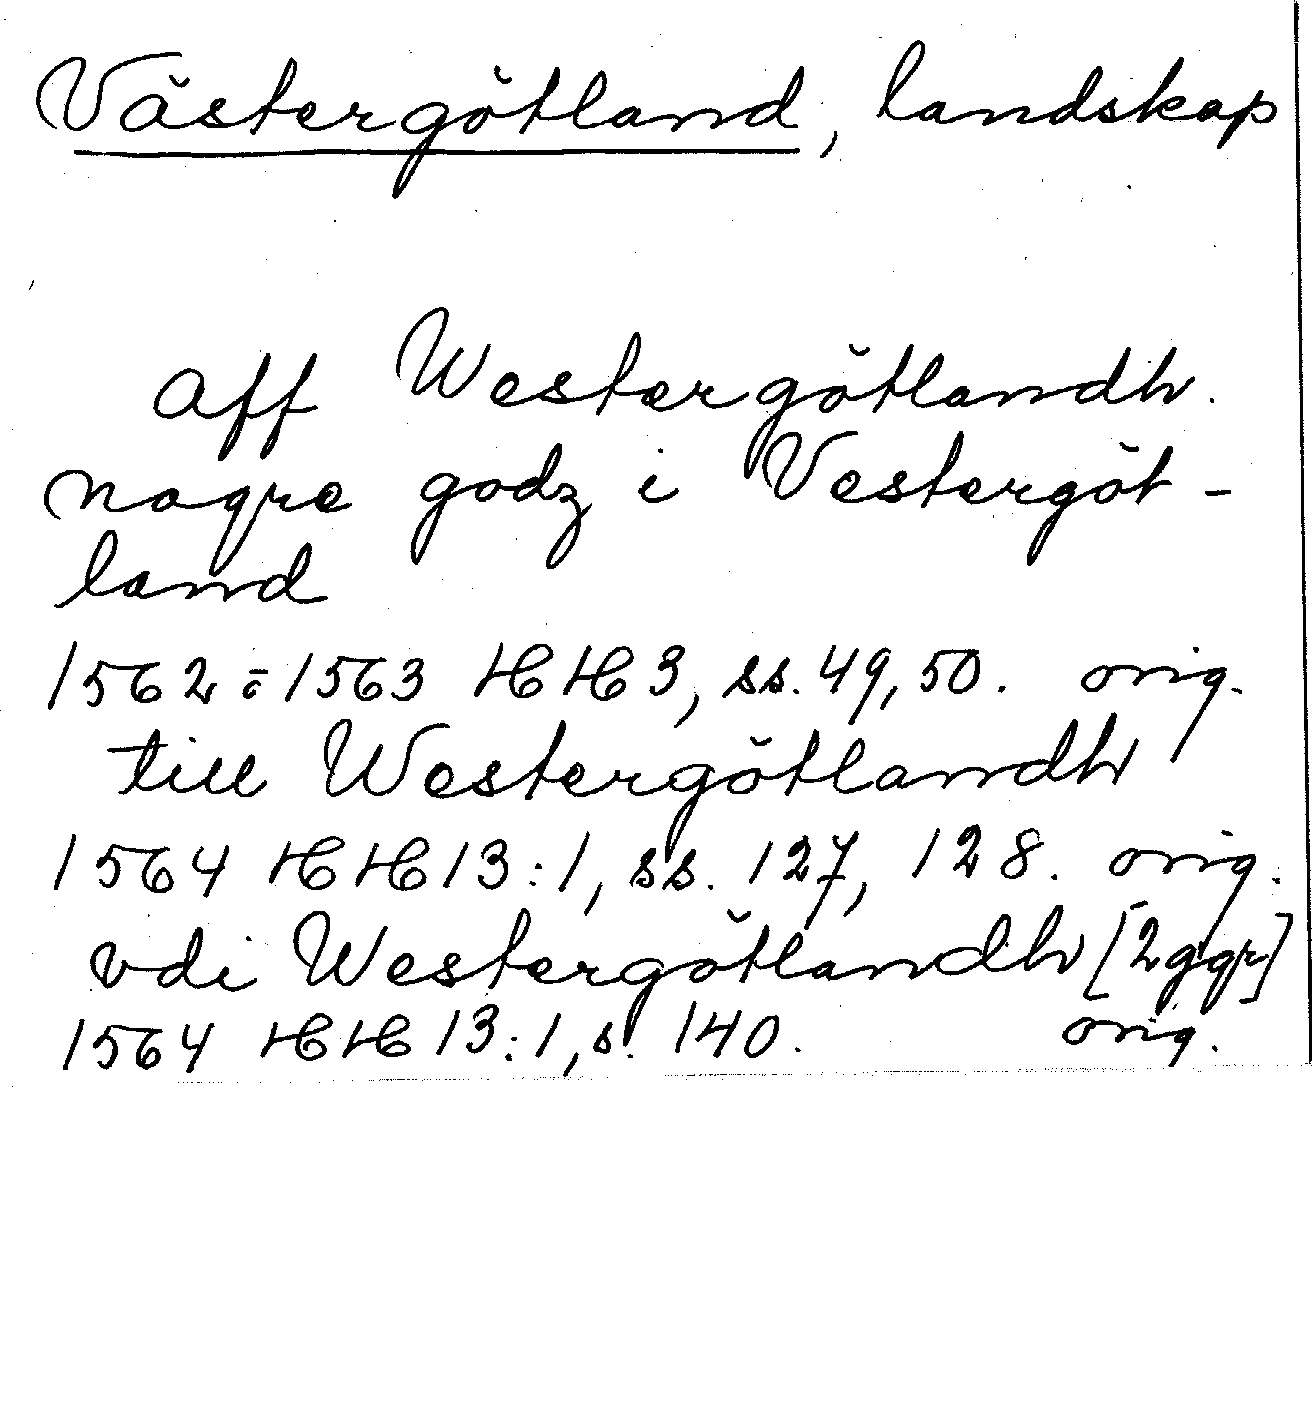 Västergötland, landskap
Aff Westergötlandh.
nagre godz i Vestergöt-
land
1562 à 1563 HH 3, ss. 49, 50. orig.
till Westergötlandh
1564 HH 13:1, ss. 127, 128. orig.
vdi Westergötlandh [2 ggr]
1564 HH 13:1, s. 140. orig.